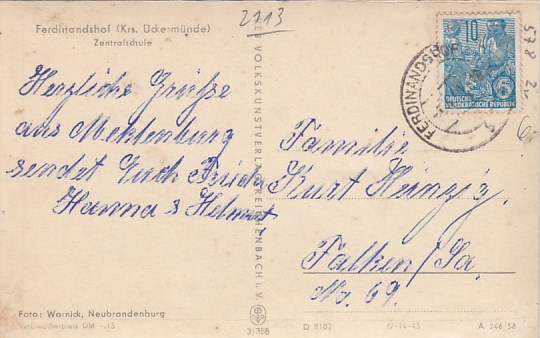 2713
Ferdinandshof (Krs. Ückermünde)
Zentralschule
Herzliche Grüße
aus Meklenburg
sendet Euch Frieda
Hanna & Helmut
Foto: Warnick, Neubrandenburg
Verbraucherpreis DM -.15
VOLKSKUNSTVERLAG REICHENBACH I. V.
3/388
10
DEUTSCHE
DEMOKRATISCHE REPUBLIK
FERDINANDSHOF
578
Familie
Kurt
Falken/Sa.
Nr. 69.
D 8102
IV-14-45
A 246/58